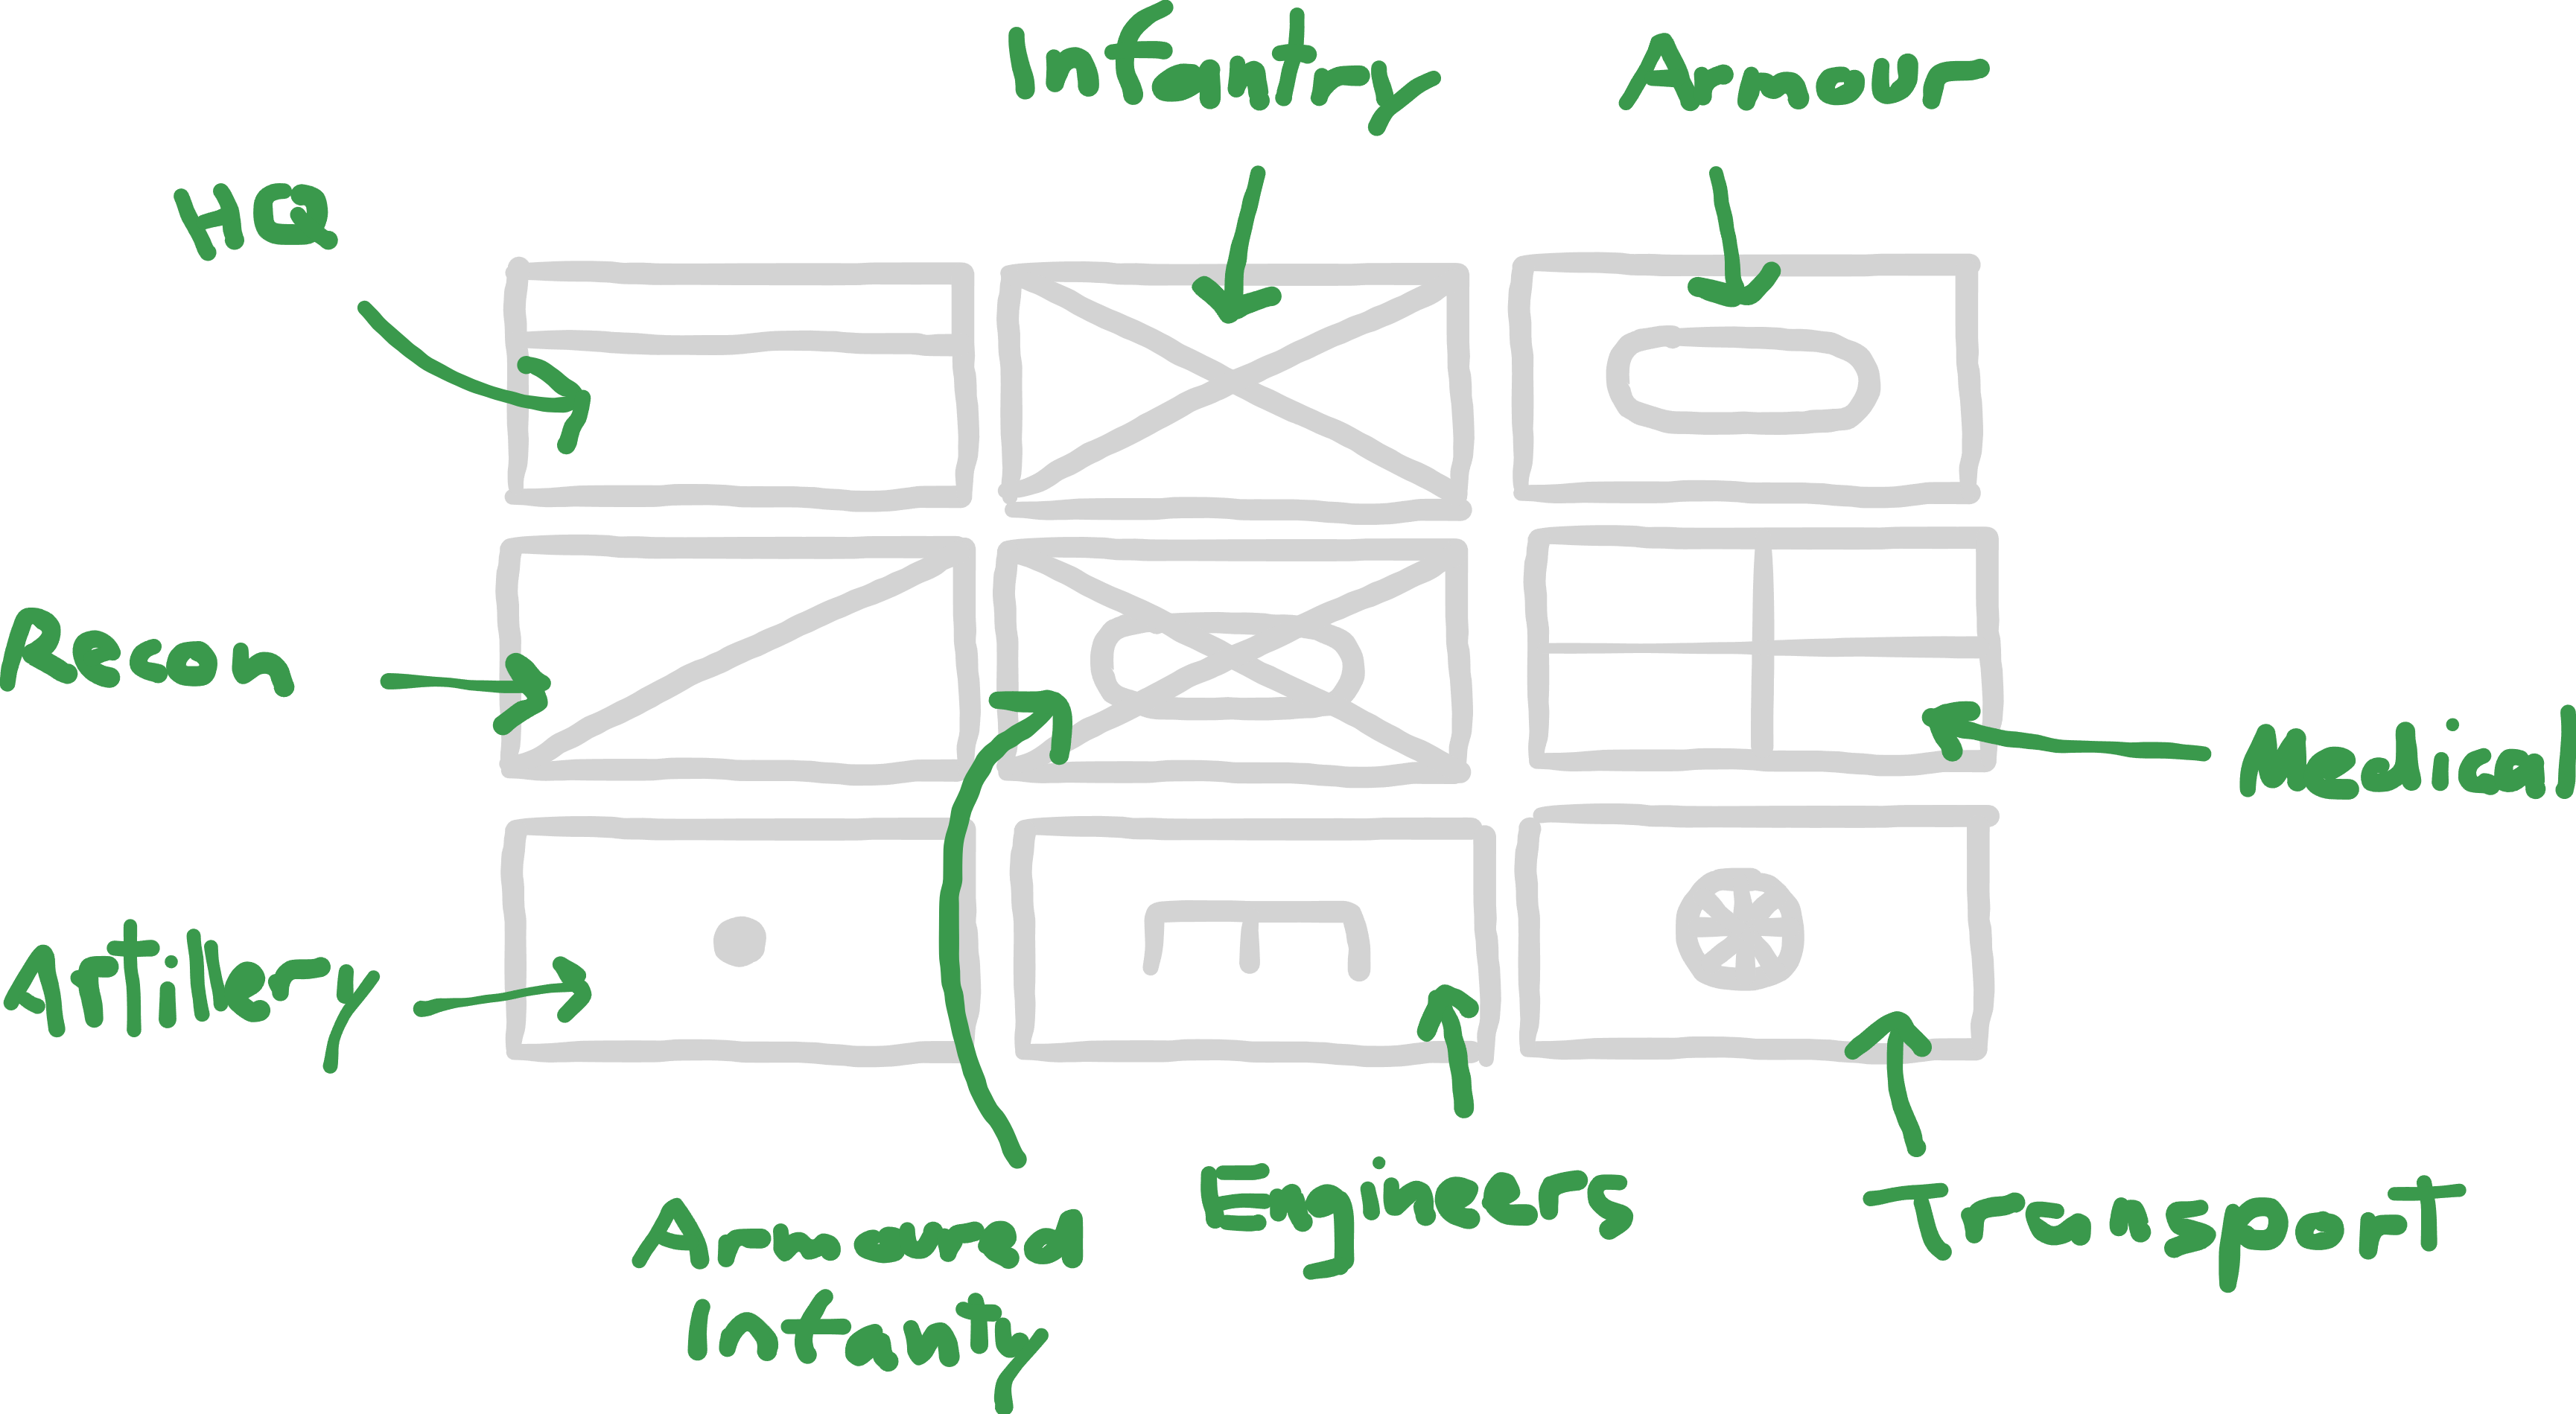 Infantry
Armour
HQ
Recon
Medical
Artillery
Armoured
Infanty
Engineers
Transport